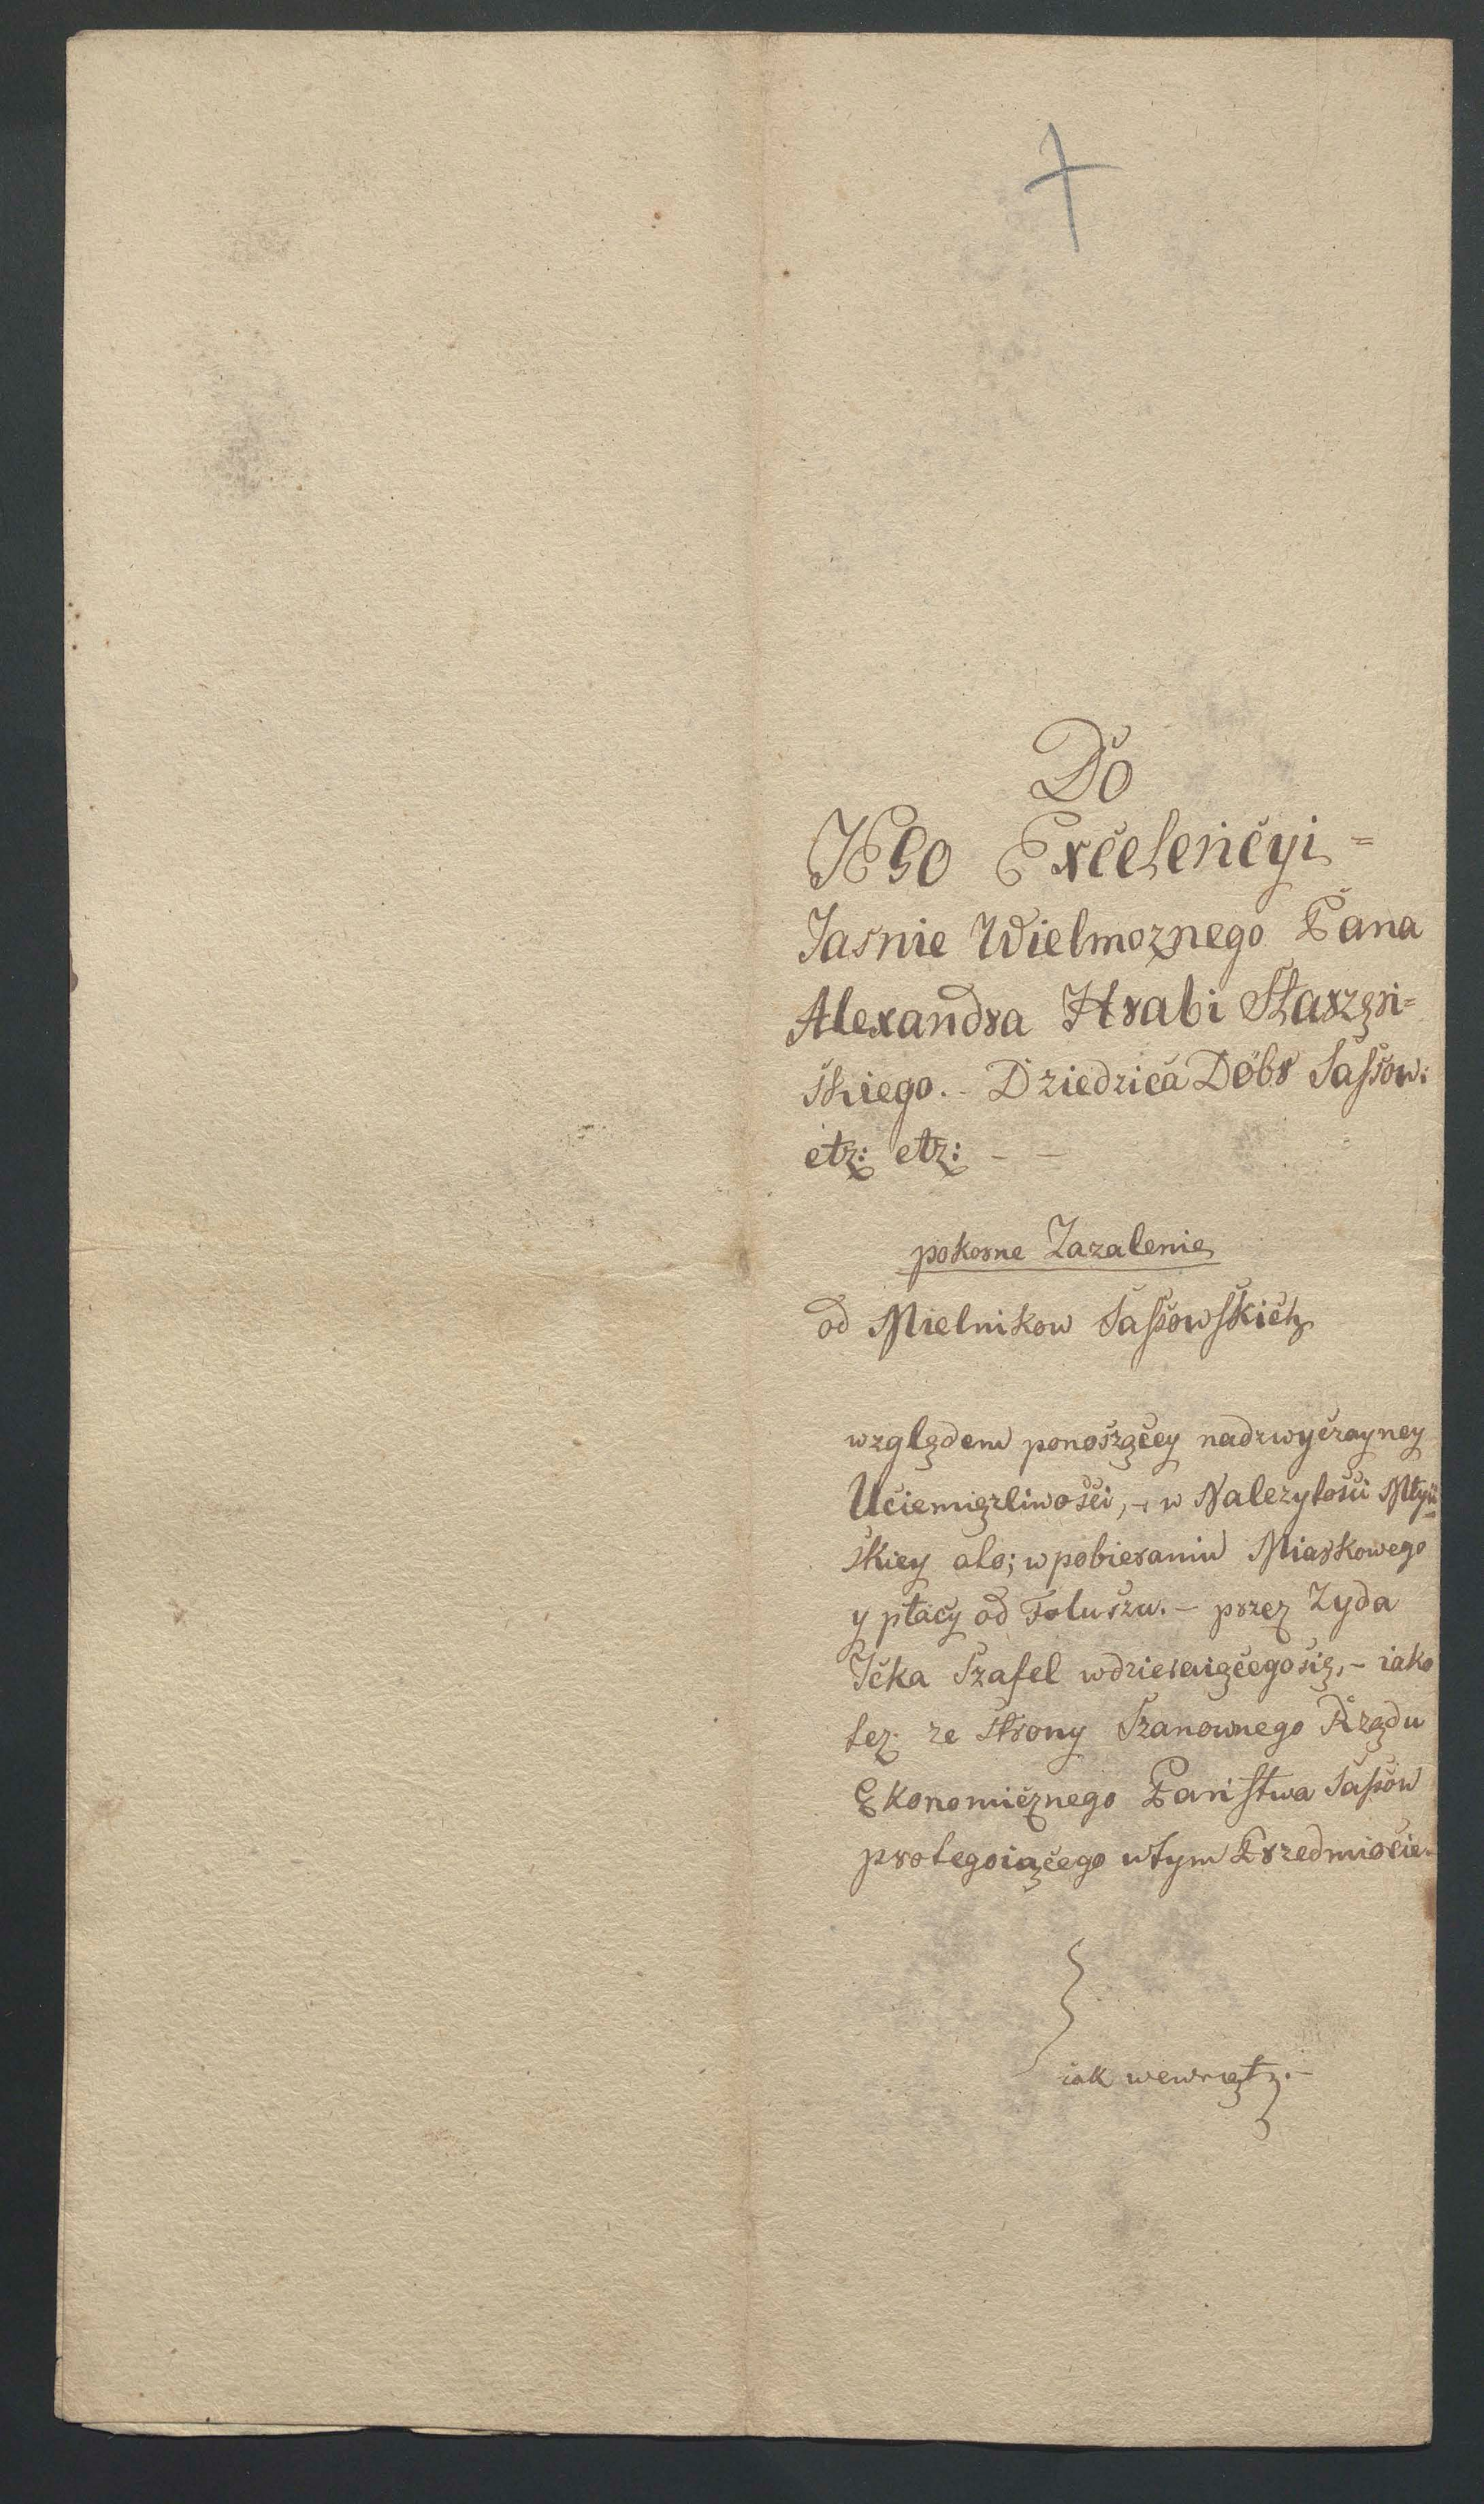 Do
JEGO Excelencyi =
Jasnie Wielmoznego Pana
Alexandra Hrabi Starzęń=
skiego. - Dziedzica Dóbr Sassow:
etz: etz: - -
pokorne Zazalenie
od Mielnikow Sassowskich
względem ponoszącey nadzwyczayney
Uciemięzliwości, - w Nalezytości Młyń=
skiey ato; w pobieraniu Miarkowego
y płacy od Foluszu. - przez Zyda
Icka Szafel wdzieraięcego się, - iako
tez ze strony Szanownego Rządu
Ekonomicznego Państwa Sassow
protegoiącego wtym Przedmiocie.
iak wewnętz. -